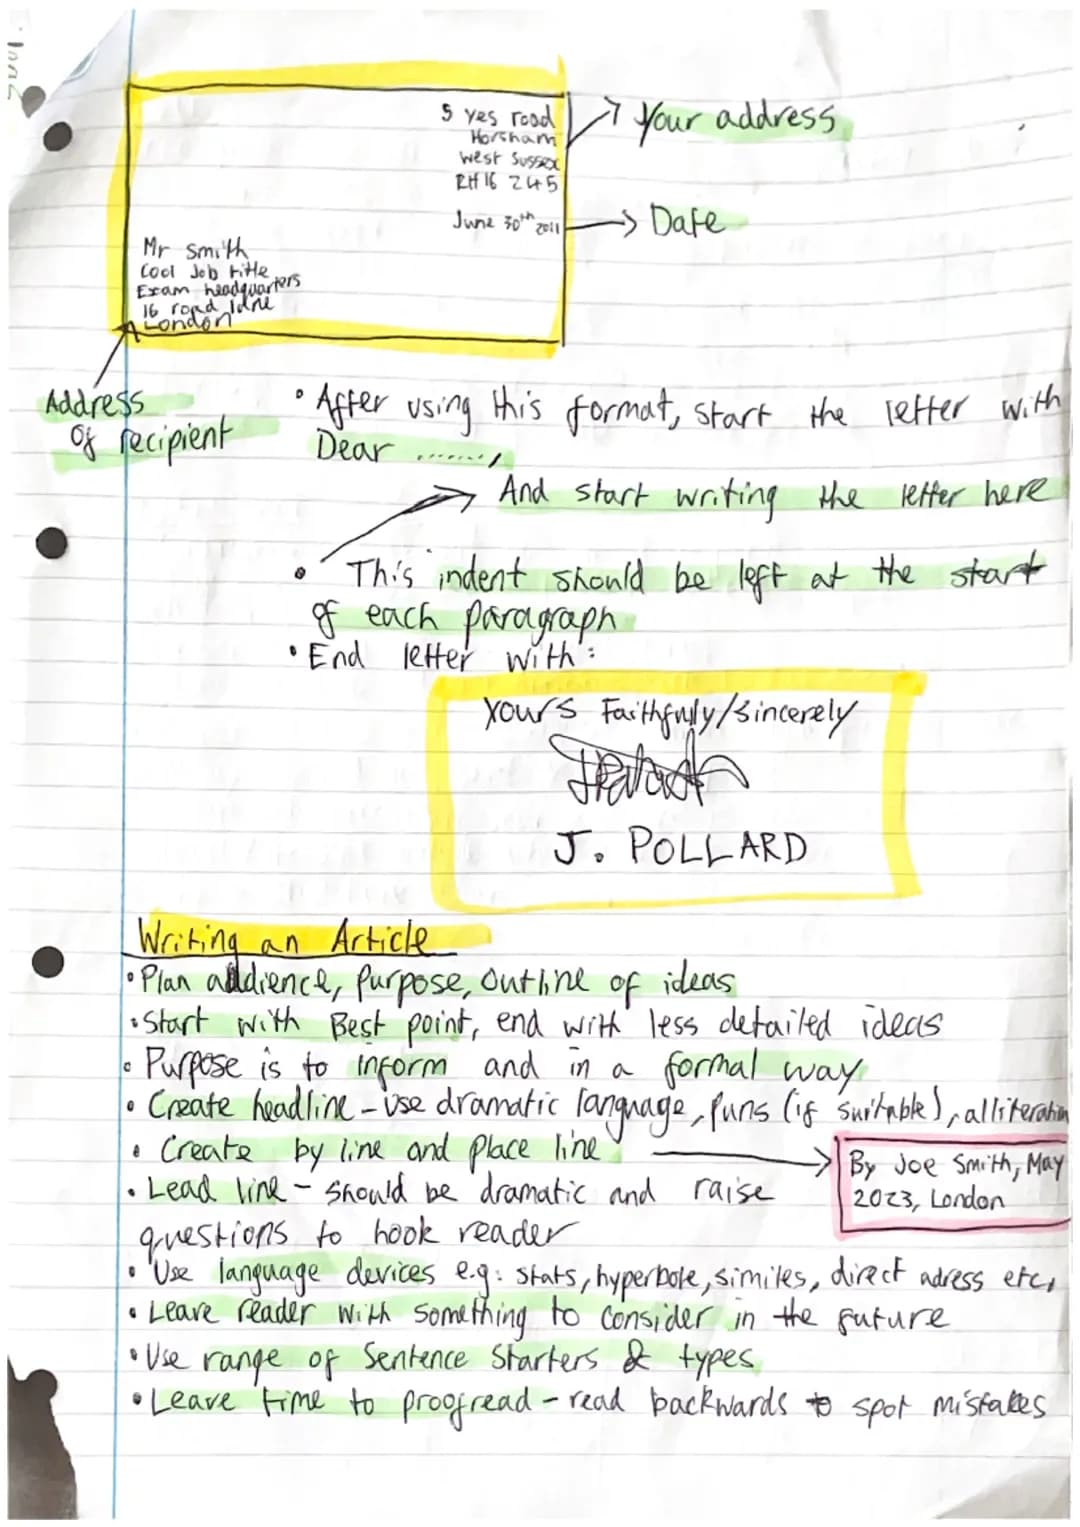 5 yes road
Horsham
West Sussex
RH16 245
June 30th 2011
Your address
Date
Mr Smith
Cool Job title
Exam headquarters
16 road lane
London
Address
of recipient
• After using this format, start the letter with
Dear .......,
And start writing the letter here
• This indent should be left at the start
of each paragraph
• End letter with:
Yours Faithfully/Sincerely
J. POLLARD
Writing an Article
• Plan audience, purpose, outline of ideas
• Start with Best point, end with less detailed ideas
• Purpose is to inform and in a formal way
• Create headline - use dramatic language, puns (if suitable), alliteration
• Create by line and place line
By Joe Smith, May
2023, London
• Lead line - should be dramatic and raise
questions to hook reader
• Use language devices e.g: stats, hyperbole, similes, direct adress etc,
• Leave reader with something to consider in the future
• Use range of Sentence Starters & types
• Leave time to proofread - read backwards to spot mistakes